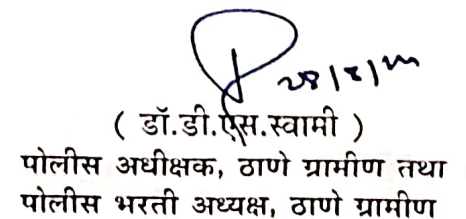 ( डॉ.डी.एस.स्वामी )
पोलीस अधीक्षक, ठाणे ग्रामीण तथा
पोलीस भरती अध्यक्ष, ठाणे ग्रामीण